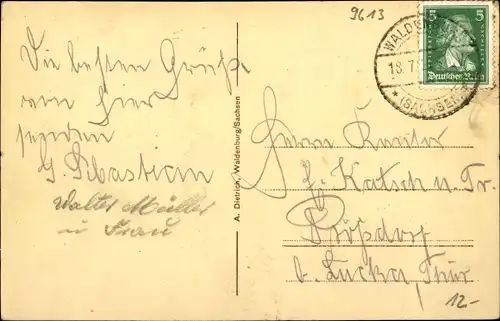 9613
Die besten Grüße
von hier
senden
G. Sebastian
Walter Müller
u Frau
A. Dietrich, Waldenburg/Sachsen
WALD
18.7
(SACHSEN)
5 5
Deutsches Reich
Herrn Kantor
Katsch u. Fr.
Rößdorf
b. Lucka, Thür
12.-